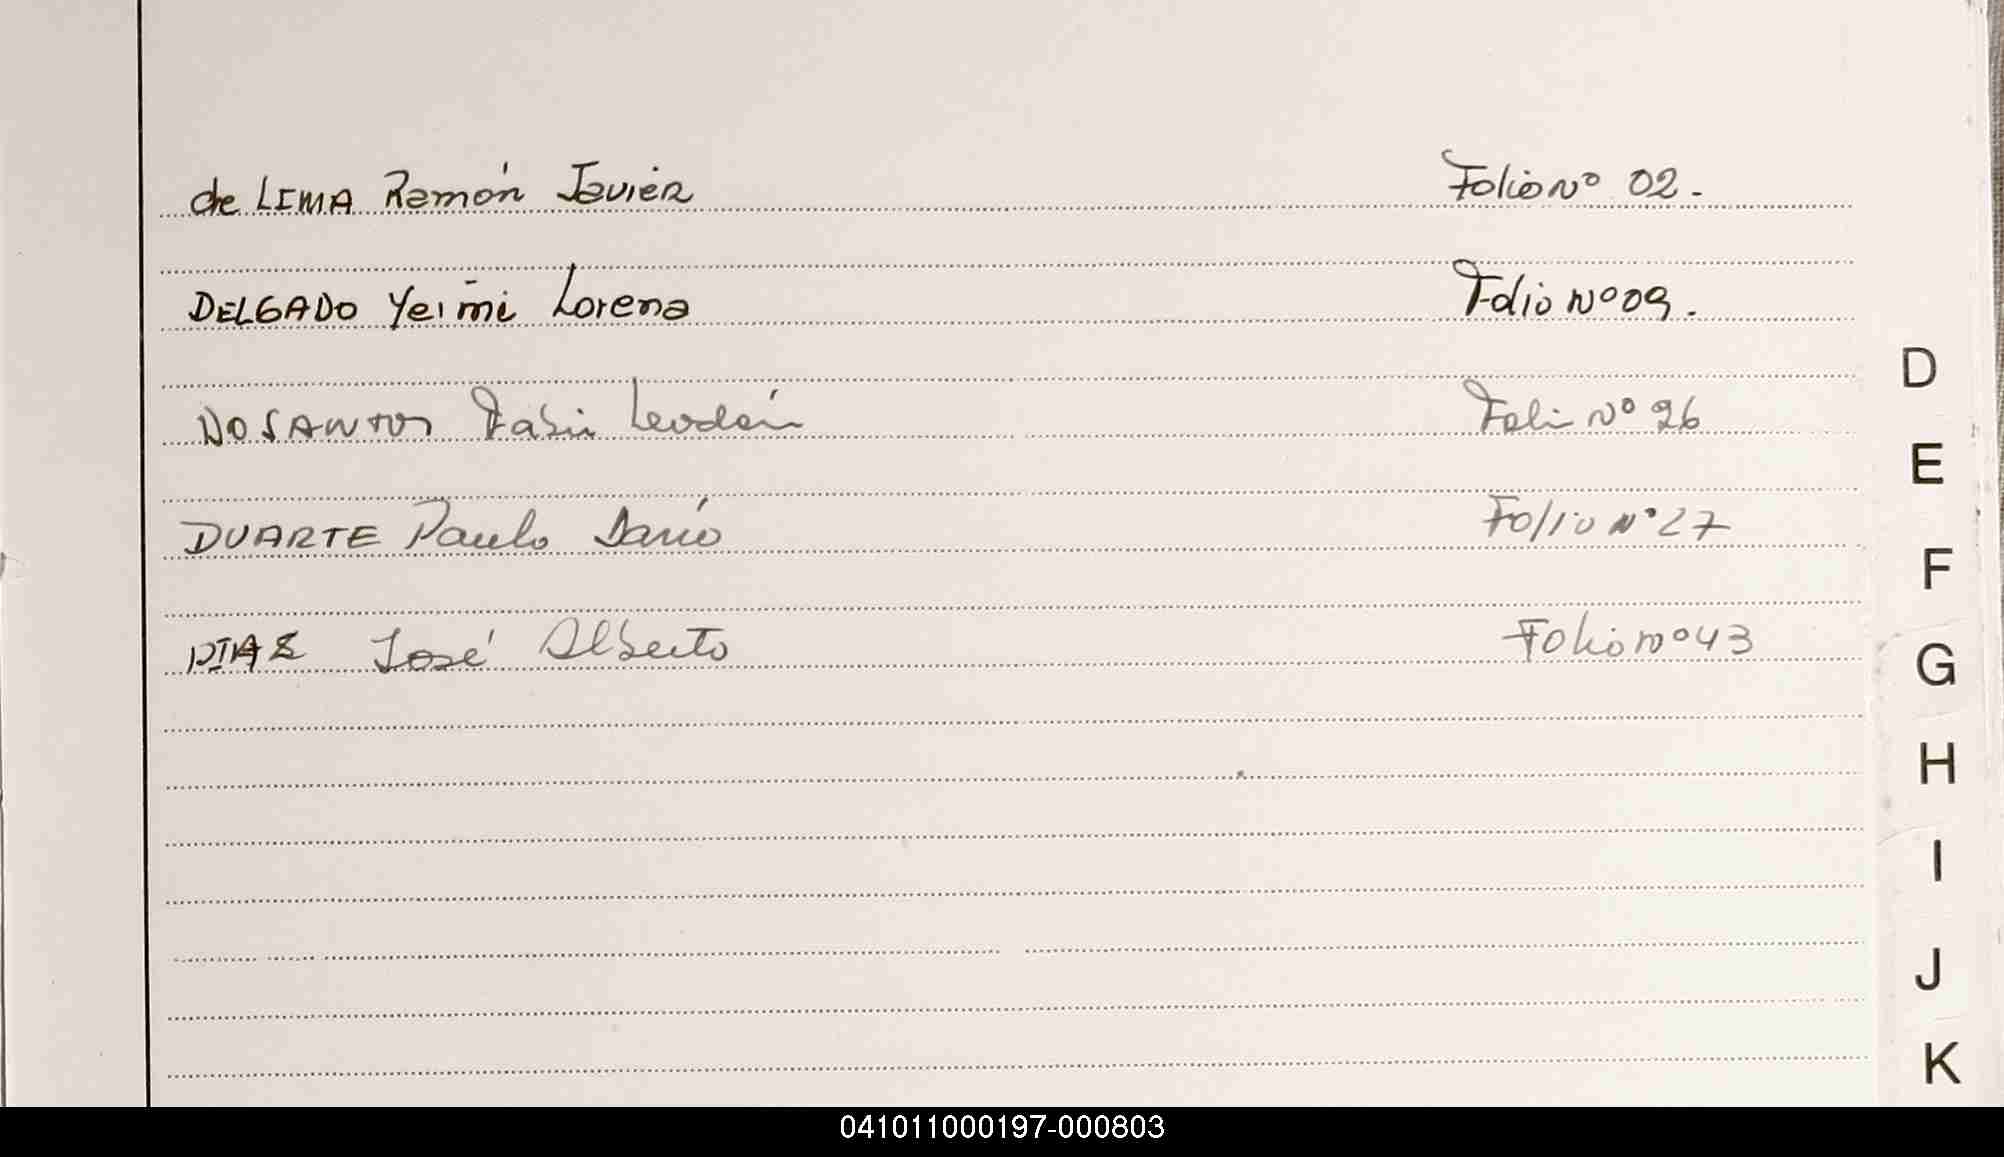 de LIMA Ramón Javier Folio Nº 02.
DELGADO Yeimi Lorena Folio Nº 09.
DO SANTOS Fabi Folio Nº 26
DUARTE Paulo Darío Folio Nº 27
DIAZ José Alberto Folio nº 43
D
E
F
G
H
I
J
K
041011000197-000803